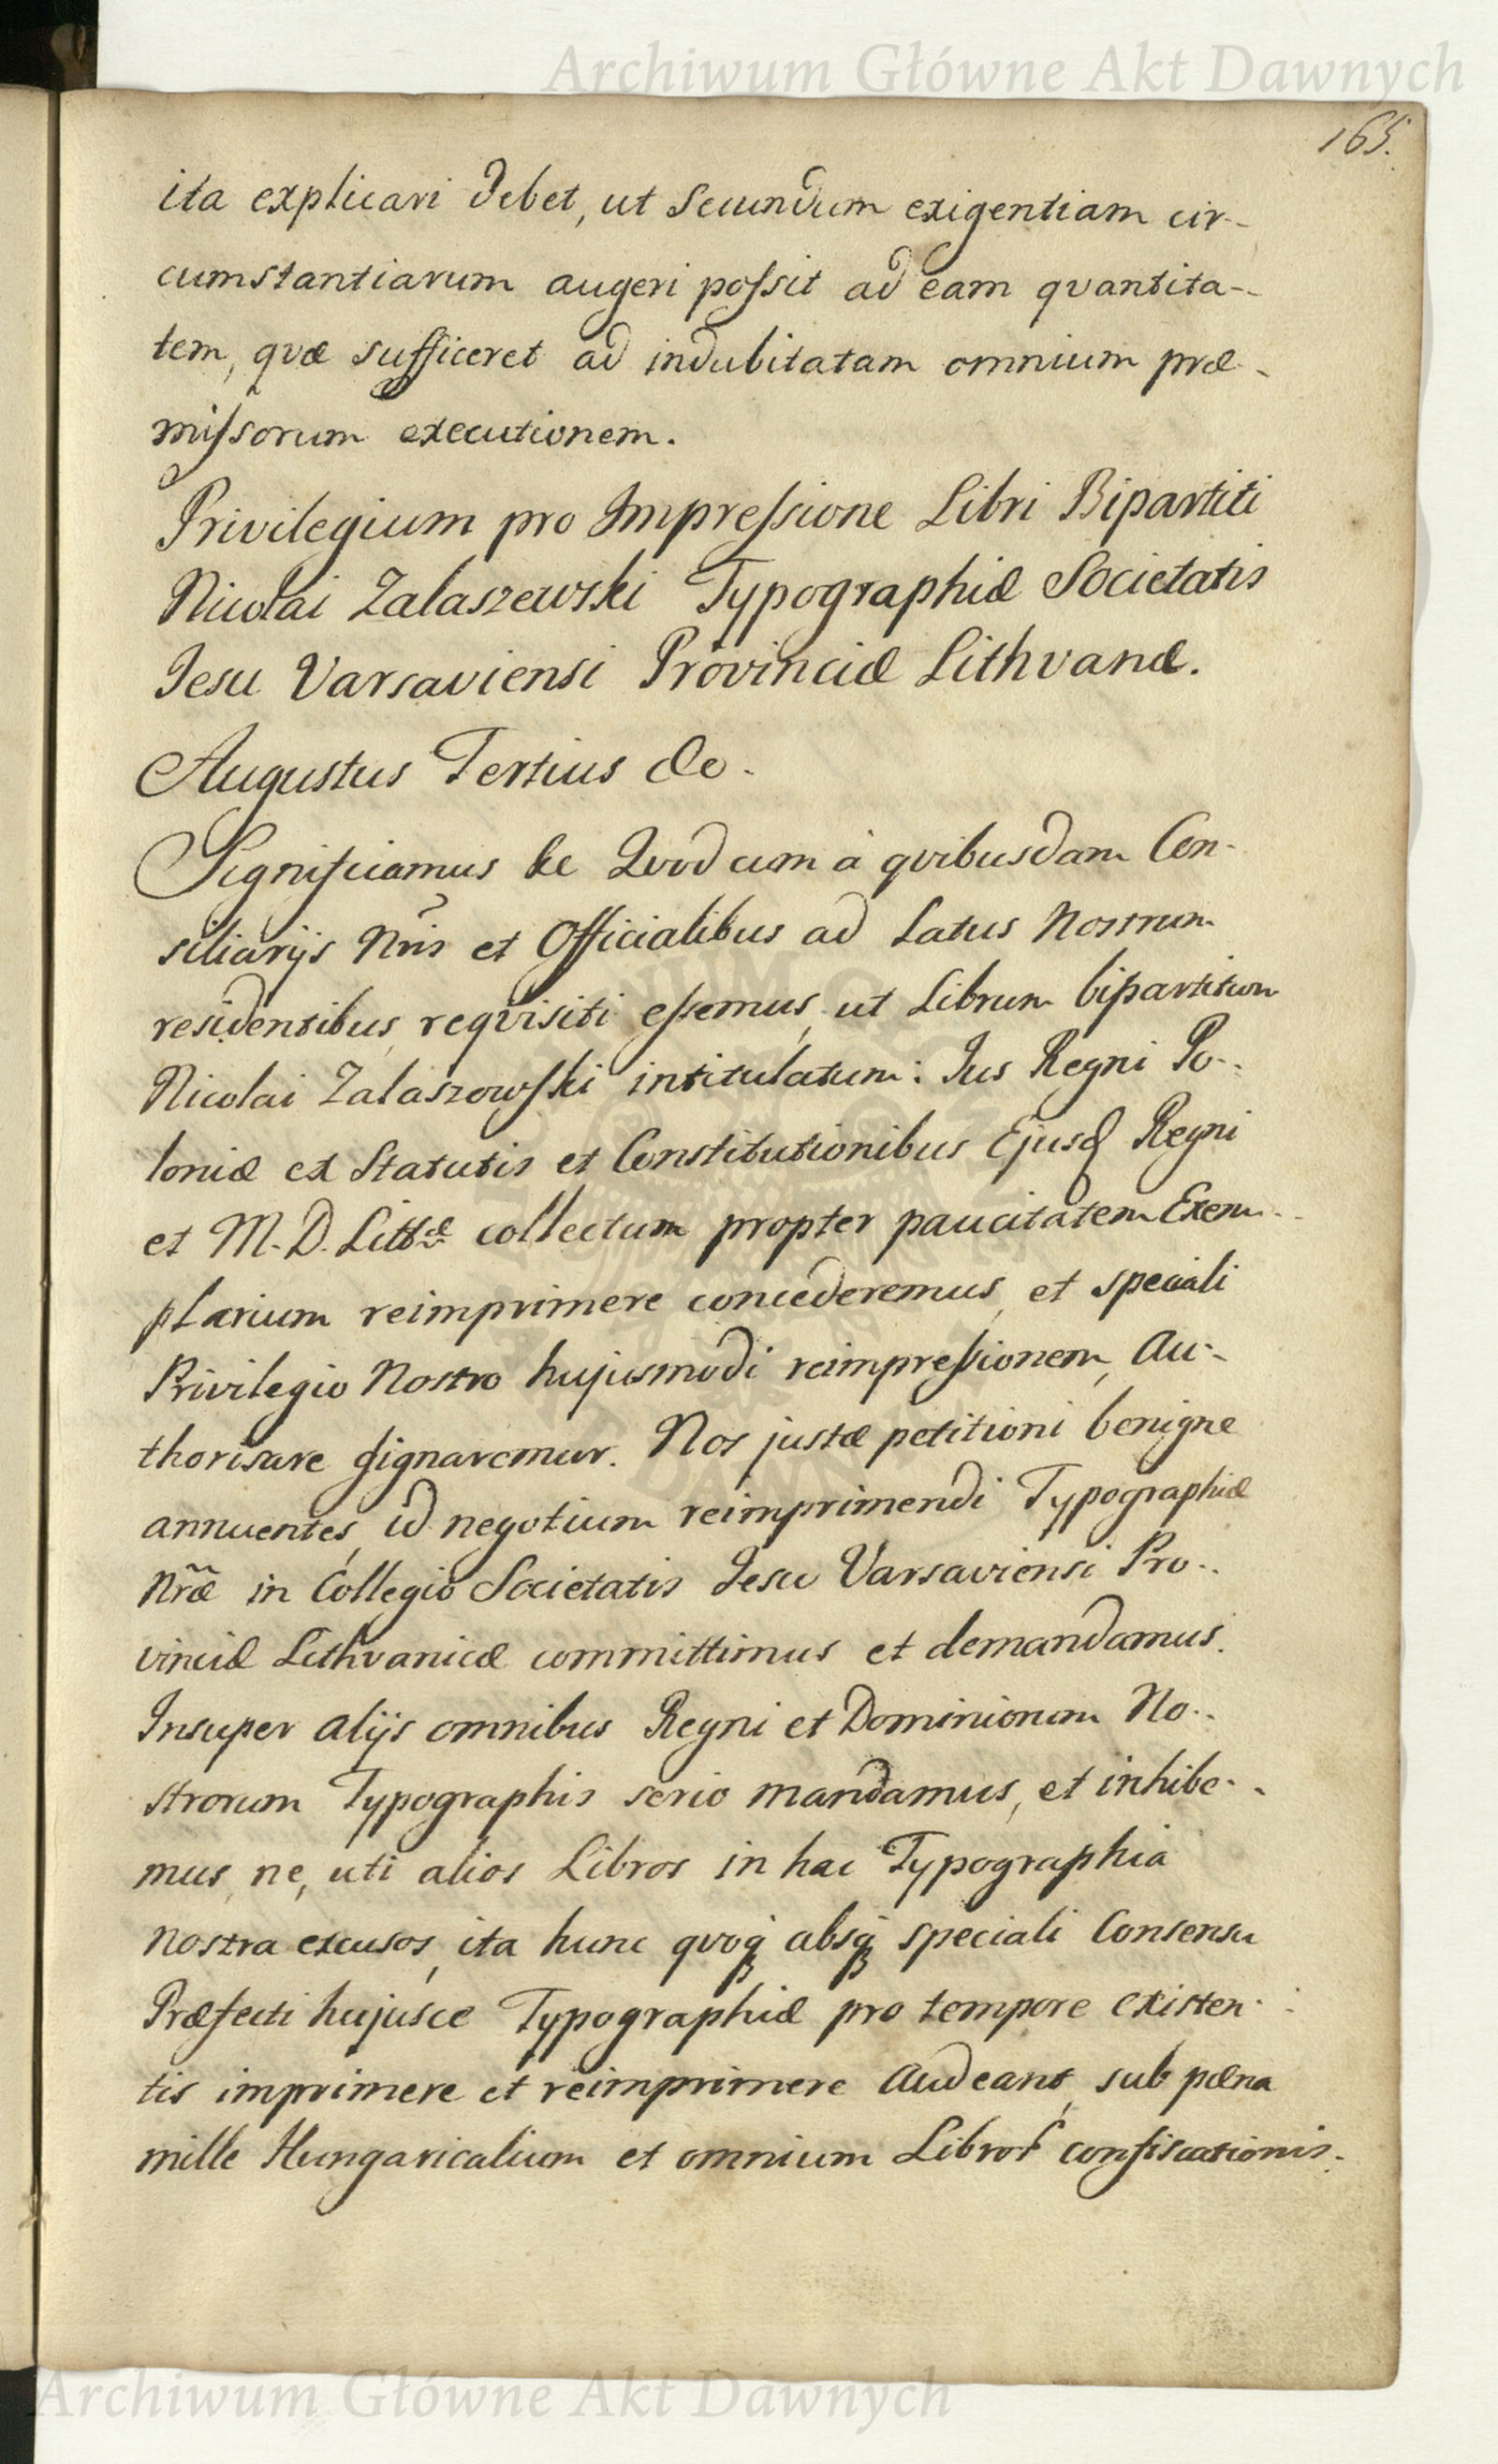 Archiwum Główne Akt Dawnych
165.
ita explicari debet, ut Secundum exigentiam cir-
cumstantiarum augeri poſsit ad eam qvantita-
tem, qvæ sufficeret ad indubitatam omnium præ-
miſsorum executionem.
Privilegium pro Impreſsione Libri Bipartiti
Nicolai Zalaszewski Typographiæ Societatis
Jesu Varsaviensi Provinciæ Lithvanæ.
Augustus Tertius &c.
Significamus &c Qvod cum à qvibusdam Con-
siliarijs Nr̃is et Officialibus ad Latus Nostrum
residentibus, reqvisiti eſsemus, ut Librum bipartitum
Nicolai Zalaszowſki intitulatum: Jus Regni Po-
loniæ ex Statutis et Constitutionibus Ejusdꝫ Regni
et M. D. Littæ collectum propter paucitatem Exem-
plarium reimprimere concederemus, et speciali
Privilegio Nostro hujusmodi reimpreſsionem, Au-
thorisare dignaremur. Nos justæ petitioni benigne
annuentes, id negotium reimprimendi Typographiæ
Nr̃æ in Collegio Societatis Jesu Varsaviensi Pro-
vinciæ Lithvanicæ committimus et demandamus.
Insuper alijs omnibus Regni et Dominiorum No-
strorum Typographis serio mandamus, et inhibe-
mus, ne, uti alios Libros in hac Typographia
nostra excusos, ita hunc qvoqꝫ absqꝫ speciali Consensu
Præfecti hujusce Typographiæ pro tempore existen-
tis imprimere et reimprimere audeant, sub pæna
mille Hungaricalium et omnium Libroꝝ confiscationis.
Archiwum Główne Akt Dawnych